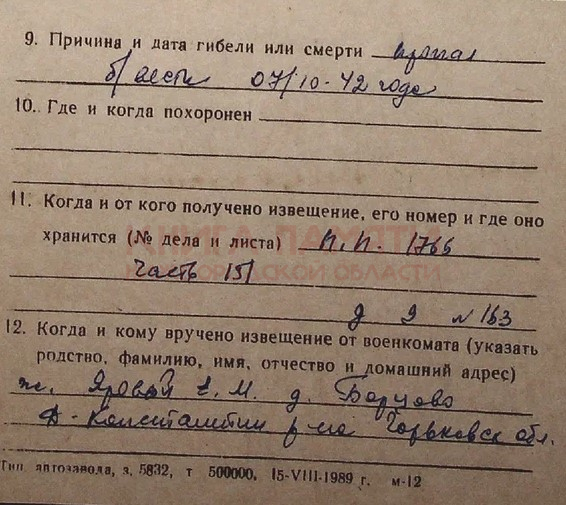 9. Причина и дата гибели или смерти пропал
б/вести 07/10-42 года
10. Где и когда похоронен
11. Когда и от кого получено извещение, его номер и где оно
хранится (№ дела и листа) п.п. 1766
КНИГА ПАМЯТИ
НИЖЕГОРОДСКОЙ ОБЛАСТИ
часть 151
д 9 № 163
12. Когда и кому вручено извещение от военкомата (указать
родство, фамилию, имя, отчество и домашний адрес)
ж. Яровой Е. М. д. Борцово
Д-Константин р-на Горьковск обл.
Тип. автозавода, з. 5832, т 500000, 15-VIII-1989 г. м-12